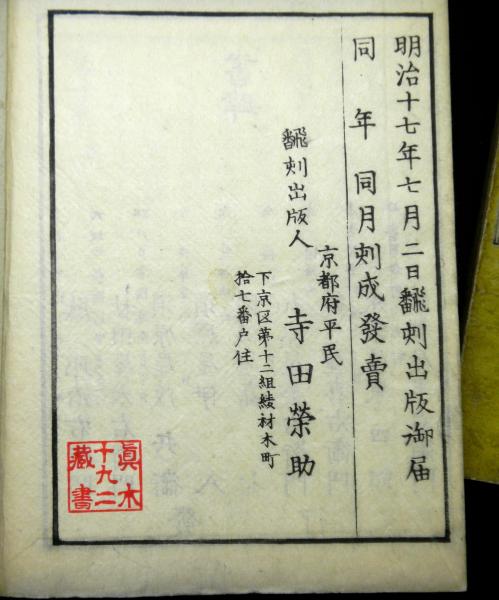 明治十七年七月二日飜刻出版御届
同年同月刻成發賣
飜刻出版人
京都府平民
寺田榮助
下京区第十二組綾材木町
拾七番戸住
眞木
十九二
藏書